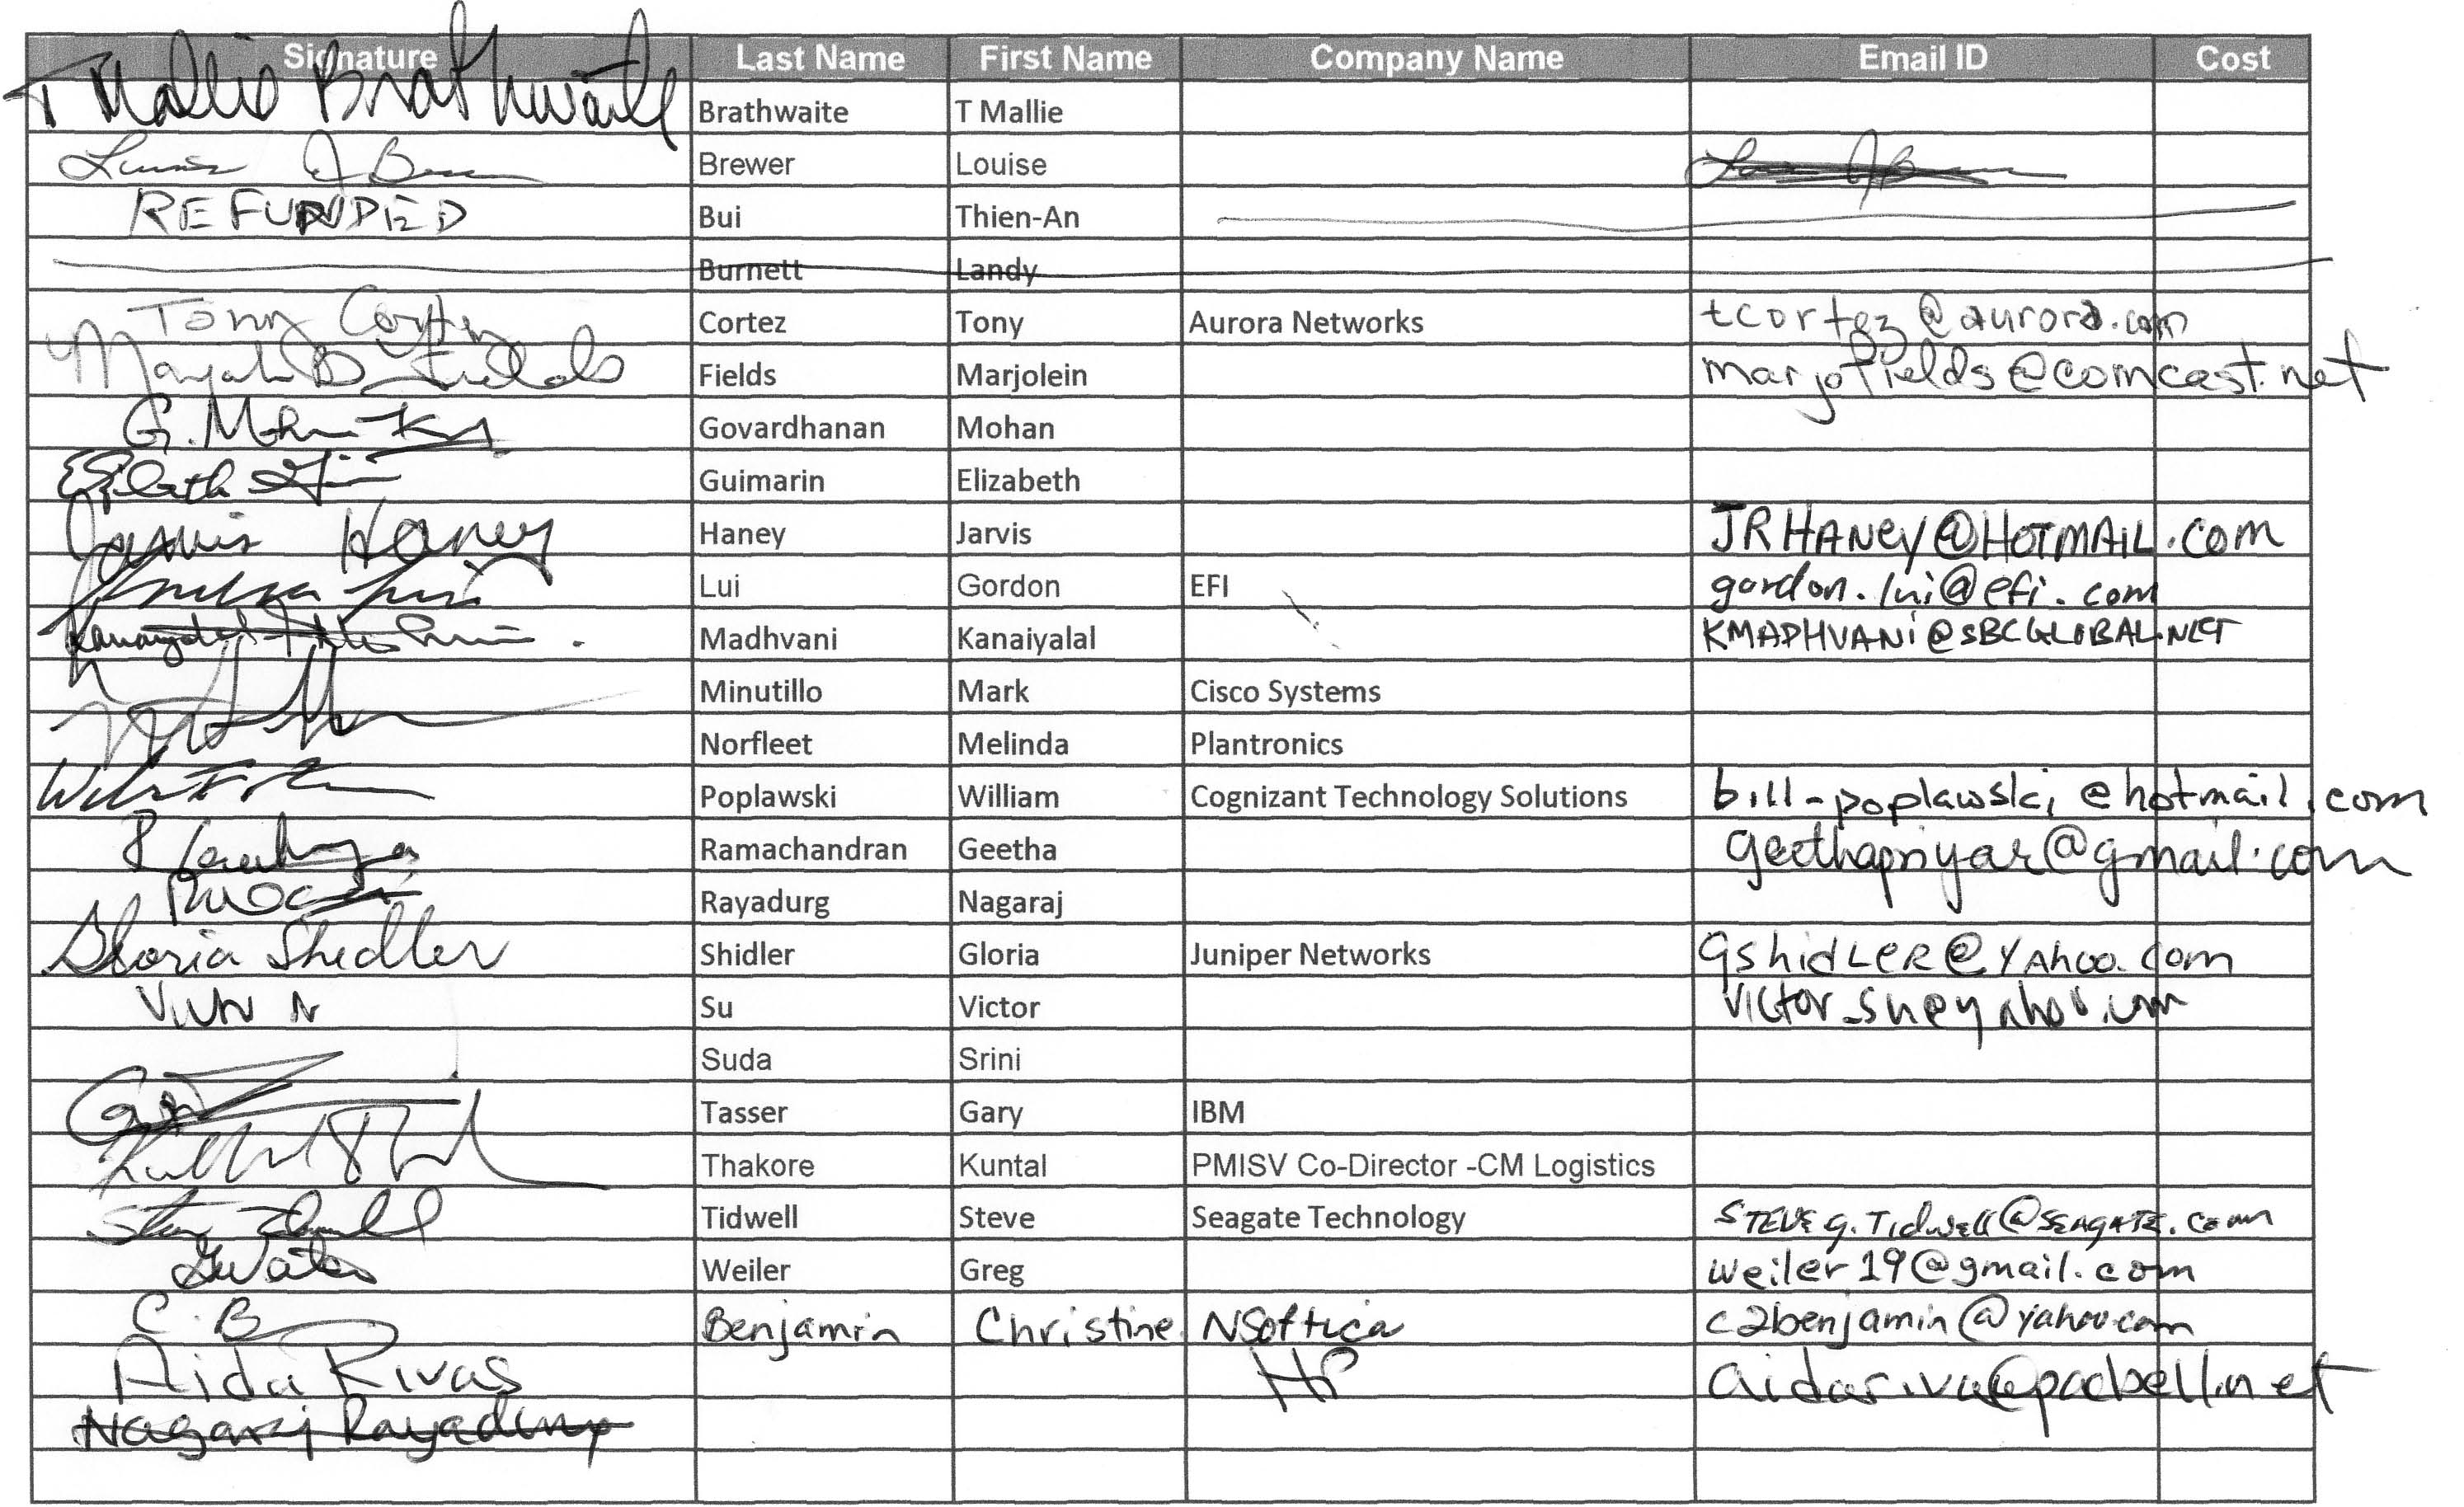 Signature Last Name First Name Company Name Email ID Cost
T Mallie Brathwaite Brathwaite T Mallie
Brewer Louise
REFUNDED Bui Thien-An
Burnett Landy
Tony Cortez Cortez Tony Aurora Networks tcortez@aurora.com
Fields Marjolein marjofields@comcast.net
Govardhanan Mohan
Guimarin Elizabeth
Jarvis Haney Haney Jarvis JRHANEY@HOTMAIL.COM
Lui Gordon EFI gordon.lui@efi.com
Madhvani Kanaiyalal KMADHVANi@SBCGLOBAL.NET
Minutillo Mark Cisco Systems
Norfleet Melinda Plantronics
Poplawski William Cognizant Technology Solutions bill-poplawski@hotmail.com
Ramachandran Geetha geethapriyar@gmail.com
Rayadurg Nagaraj
Gloria Shidler Shidler Gloria Juniper Networks gshidLeR@YAhoo.com
Su Victor
Suda Srini
Tasser Gary IBM
Thakore Kuntal PMISV Co-Director -CM Logistics
Tidwell Steve Seagate Technology STEVE.g.Tidwell@SEAGATE.com
Weiler Greg weiler19@gmail.com
C.B Benjamin Christine NSoftica c2benjamin@yahoo.com
Aida Rivas HP
Nagaraj Rayadurg